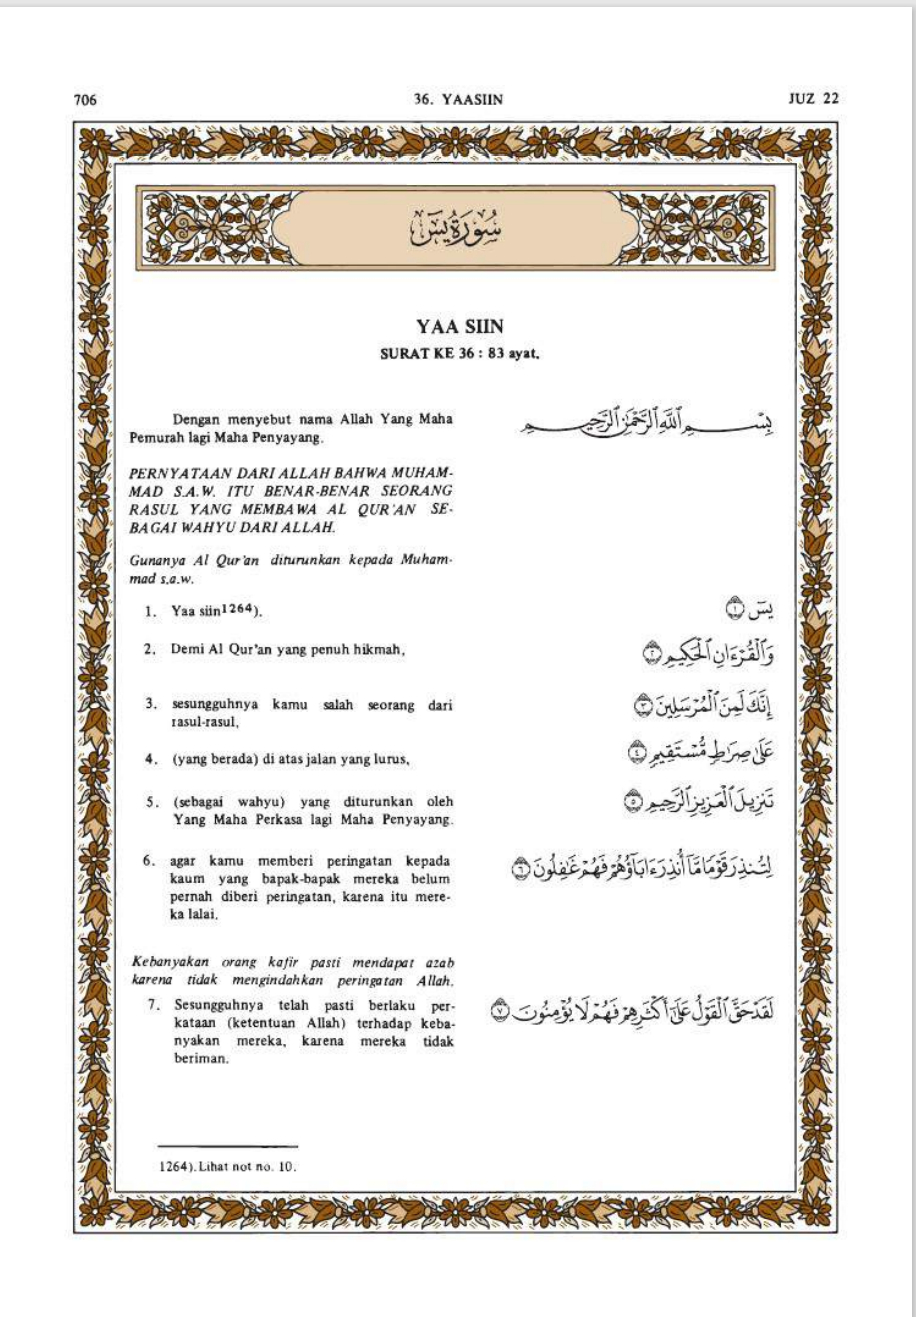 706
36. YAASIIN
JUZ 22
سُورَةُ يسٓ
YAA SIIN
SURAT KE 36 : 83 ayat.
Dengan menyebut nama Allah Yang Maha
Pemurah lagi Maha Penyayang.
بِسْمِ ٱللَّهِ ٱلرَّحْمَٰنِ ٱلرَّحِيمِ
PERNYATAAN DARI ALLAH BAHWA MUHAM-
MAD S.A.W. ITU BENAR-BENAR SEORANG
RASUL YANG MEMBAWA AL QUR'AN SE-
BAGAI WAHYU DARI ALLAH.
Gunanya Al Qur'an diturunkan kepada Muham-
mad s.a.w.
1. Yaa siin1264).
يسٓ ١
2. Demi Al Qur'an yang penuh hikmah,
وَٱلْقُرْءَانِ ٱلْحَكِيمِ ٢
3. sesungguhnya kamu salah seorang dari
rasul-rasul,
إِنَّكَ لَمِنَ ٱلْمُرْسَلِينَ ٣
4. (yang berada) di atas jalan yang lurus,
عَلَىٰ صِرَٰطٍ مُّسْتَقِيمٍ ٤
5. (sebagai wahyu) yang diturunkan oleh
Yang Maha Perkasa lagi Maha Penyayang.
تَنزِيلَ ٱلْعَزِيزِ ٱلرَّحِيمِ ٥
6. agar kamu memberi peringatan kepada
kaum yang bapak-bapak mereka belum
pernah diberi peringatan, karena itu mere-
ka lalai.
لِتُنذِرَ قَوْمًا مَّآ أُنذِرَ ءَابَآؤُهُمْ فَهُمْ غَٰفِلُونَ ٦
Kebanyakan orang kafir pasti mendapat azab
karena tidak mengindahkan peringatan Allah.
7. Sesungguhnya telah pasti berlaku per-
kataan (ketentuan Allah) terhadap keba-
nyakan mereka, karena mereka tidak
beriman.
لَقَدْ حَقَّ ٱلْقَوْلُ عَلَىٰٓ أَكْثَرِهِمْ فَهُمْ لَا يُؤْمِنُونَ ٧
1264). Lihat not no. 10.